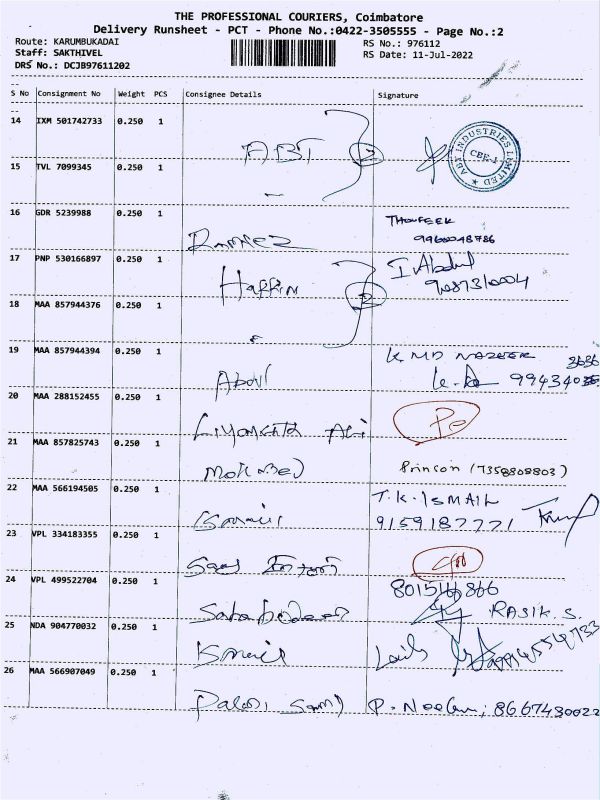 THE PROFESSIONAL COURIERS, Coimbatore
Delivery Runsheet - PCT - Phone No.:0422-3505555 - Page No.:2
Route: KARUMBUKADAI
Staff: SAKTHIVEL
DRS No.: DCJB97611202
RS No.: 976112
RS Date: 11-Jul-2022
S No Consignment No Weight PCS Consignee Details Signature
14 IXM 501742733 0.250 1
ABT 2
ABT INDUSTRIES LIMITED
CBE-1
15 TVL 7099345 0.250 1
16 GDR 5239988 0.250 1
THOUFEEK
17 PNP 530166897 0.250 1
I. Abdul
2
18 MAA 857944376 0.250 1
19 MAA 857944394 0.250 1
K. MD NAZEER
Abdul
20 MAA 288152455 0.250 1
Ali
21 MAA 857825743 0.250 1
Mohamed Princon (7358808803)
22 MAA 566194505 0.250 1
T.K. ISMAIL
Ismail 9159187771
23 VPL 334183355 0.250 1
24 VPL 499522704 0.250 1
RASIK. S.
25 NDA 904770032 0.250 1
Ismail
26 MAA 566907049 0.250 1
Palani Samy P. 8667430022